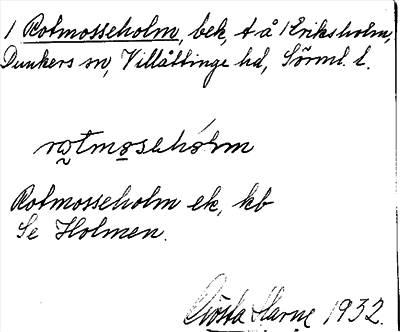 1 Rotmosseholm, bek, t å 1 Eriksholm,
Dunkers sn, Villåttinge hd, Sörml. l.
rotmosehólm
Rotmosseholm ek, kb
Se Holmen.
Gösta Harne 1932.